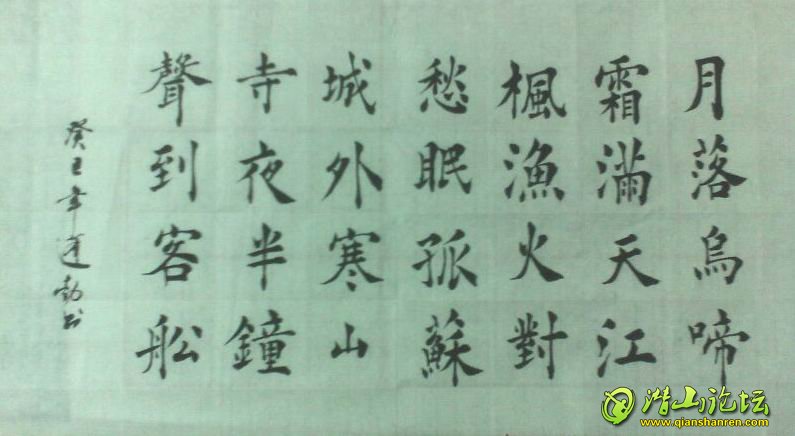 月落烏啼
霜滿天江
楓漁火對
愁眠孤蘇
城外寒山
寺夜半鐘
聲到客舩
癸巳年书
潜山论坛
www.qianshanren.com